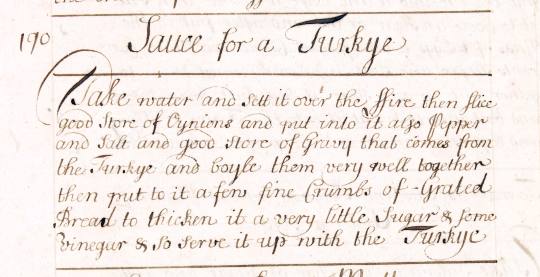 190 Sauce for a Turkye
Take water and sett it over the ffire then slice
good store of Oynions and put into it also Pepper
and salt and good store of Gravy that comes from
the Turkye and boyle them very well together
then put to it a few fine Crumbs of Grated
Bread to thicken it a very little Sugar & some
vinegar & so serve it up with the Turkye